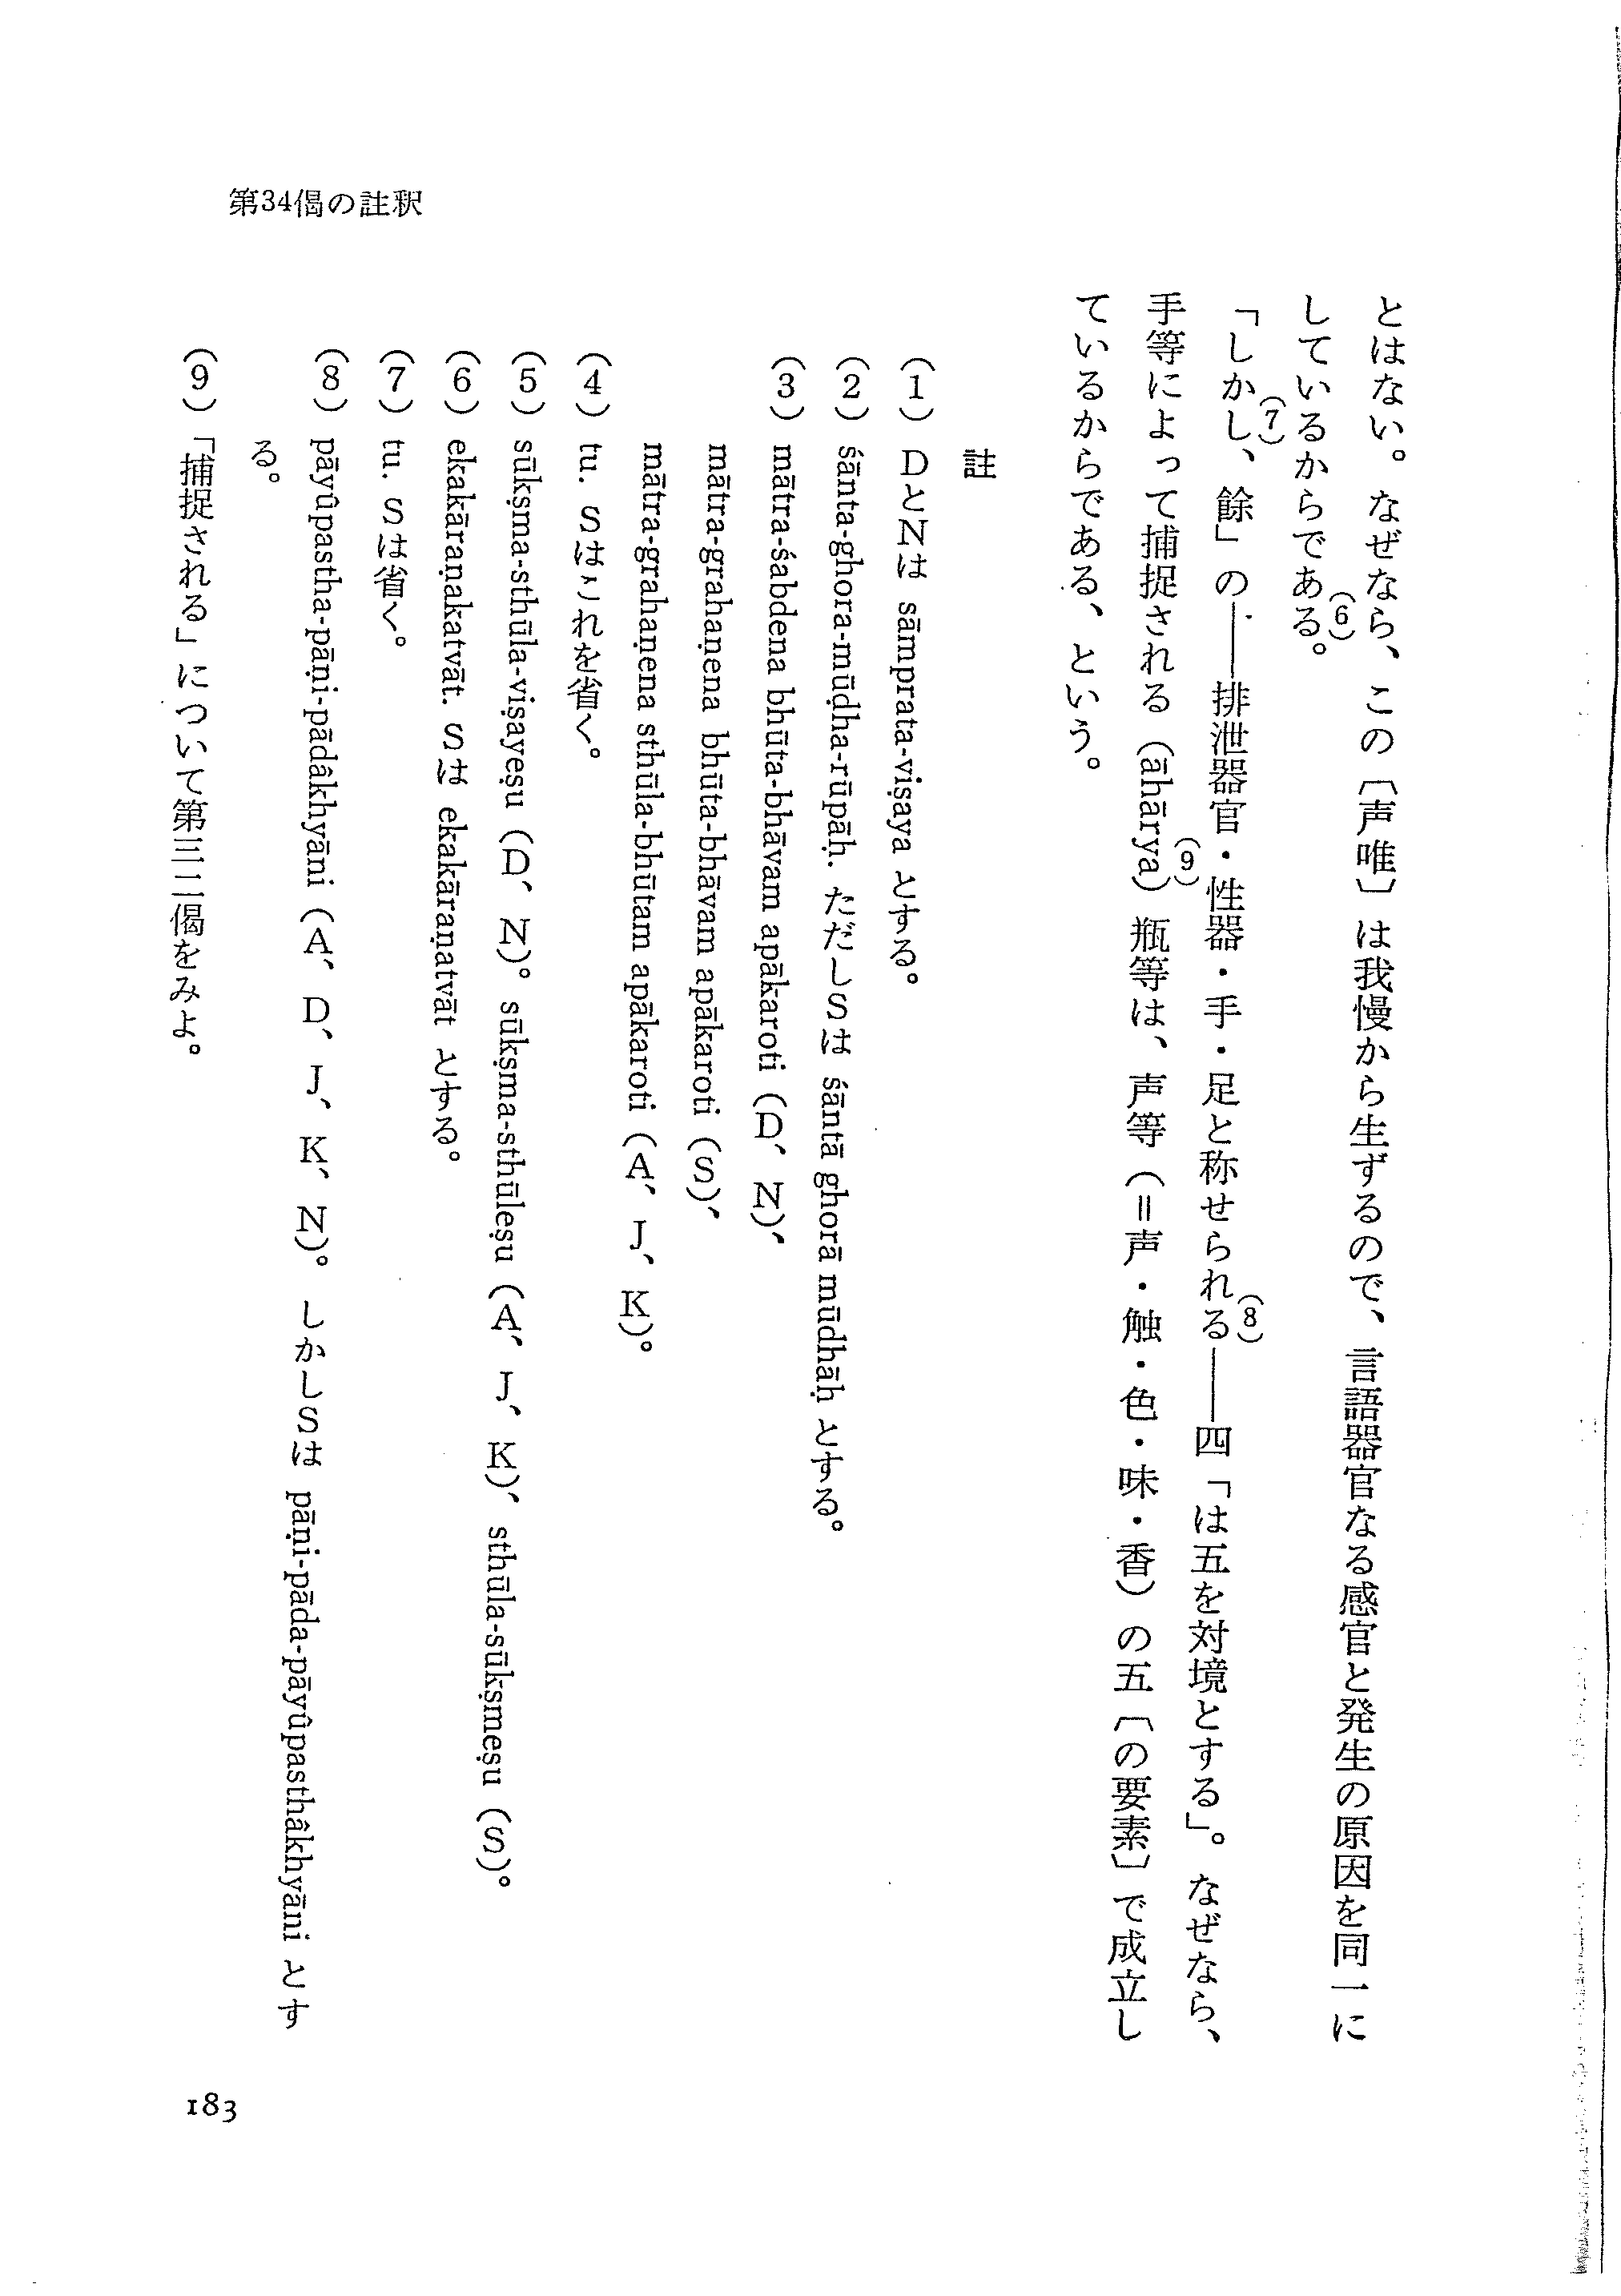 第34偈の註釈
とはない。なぜなら、この〔声唯〕は我慢から生ずるので、言語器官なる感官と発生の原因を同一に
しているからである。(6)
「しかし、(7)餘」の――排泄器官・性器・手・足と称せられる(8)――四「は五を対境とする」。なぜなら、
手等によって捕捉される(āhārya)(9)瓶等は、声等(=声・触・色・味・香)の五〔の要素〕で成立し
ているからである、という。
註
(1) DとNは sāmprata-viṣaya とする。
(2) śānta-ghora-mūḍha-rūpāḥ. ただしSは śāntā ghorā mūdhāḥ とする。
(3) mātra-śabdena bhūta-bhāvam apākaroti (D、N)、
mātra-grahaṇena bhūta-bhāvam apākaroti (S)、
mātra-grahaṇena sthūla-bhūtam apākaroti (A、J、K)。
(4) tu. Sはこれを省く。
(5) sūkṣma-sthūla-viṣayeṣu (D、N)。sūkṣma-sthūleṣu (A、J、K)、sthūla-sūkṣmeṣu (S)。
(6) ekakāraṇakatvāt. Sは ekakāraṇatvāt とする。
(7) tu. Sは省く。
(8) pāyûpastha-pāṇi-pādâkhyāni (A、D、J、K、N)。しかしSは pāṇi-pāda-pāyûpasthâkhyāni とす
る。
(9) 「捕捉される」について第三二偈をみよ。
183